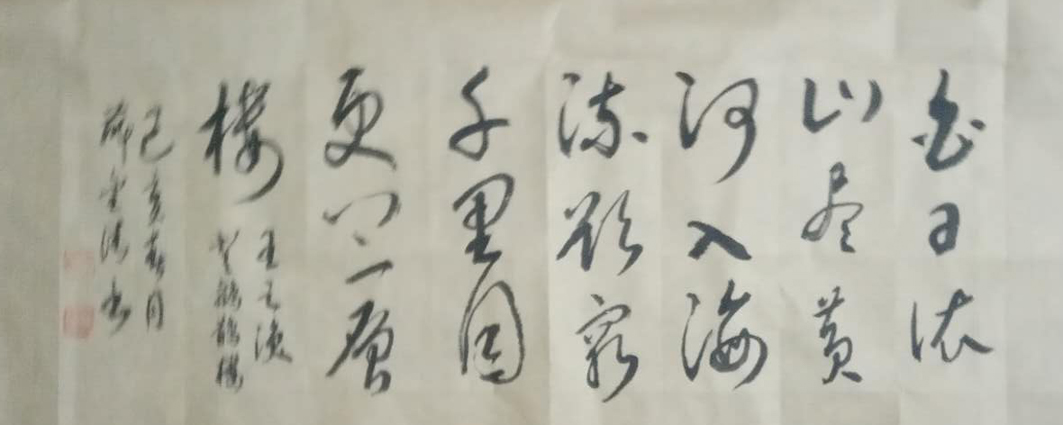 白日依
山尽黄
河入海
流欲窮
千里目
更上一層
楼
王之涣
登鹳鹊楼
己亥春月
书